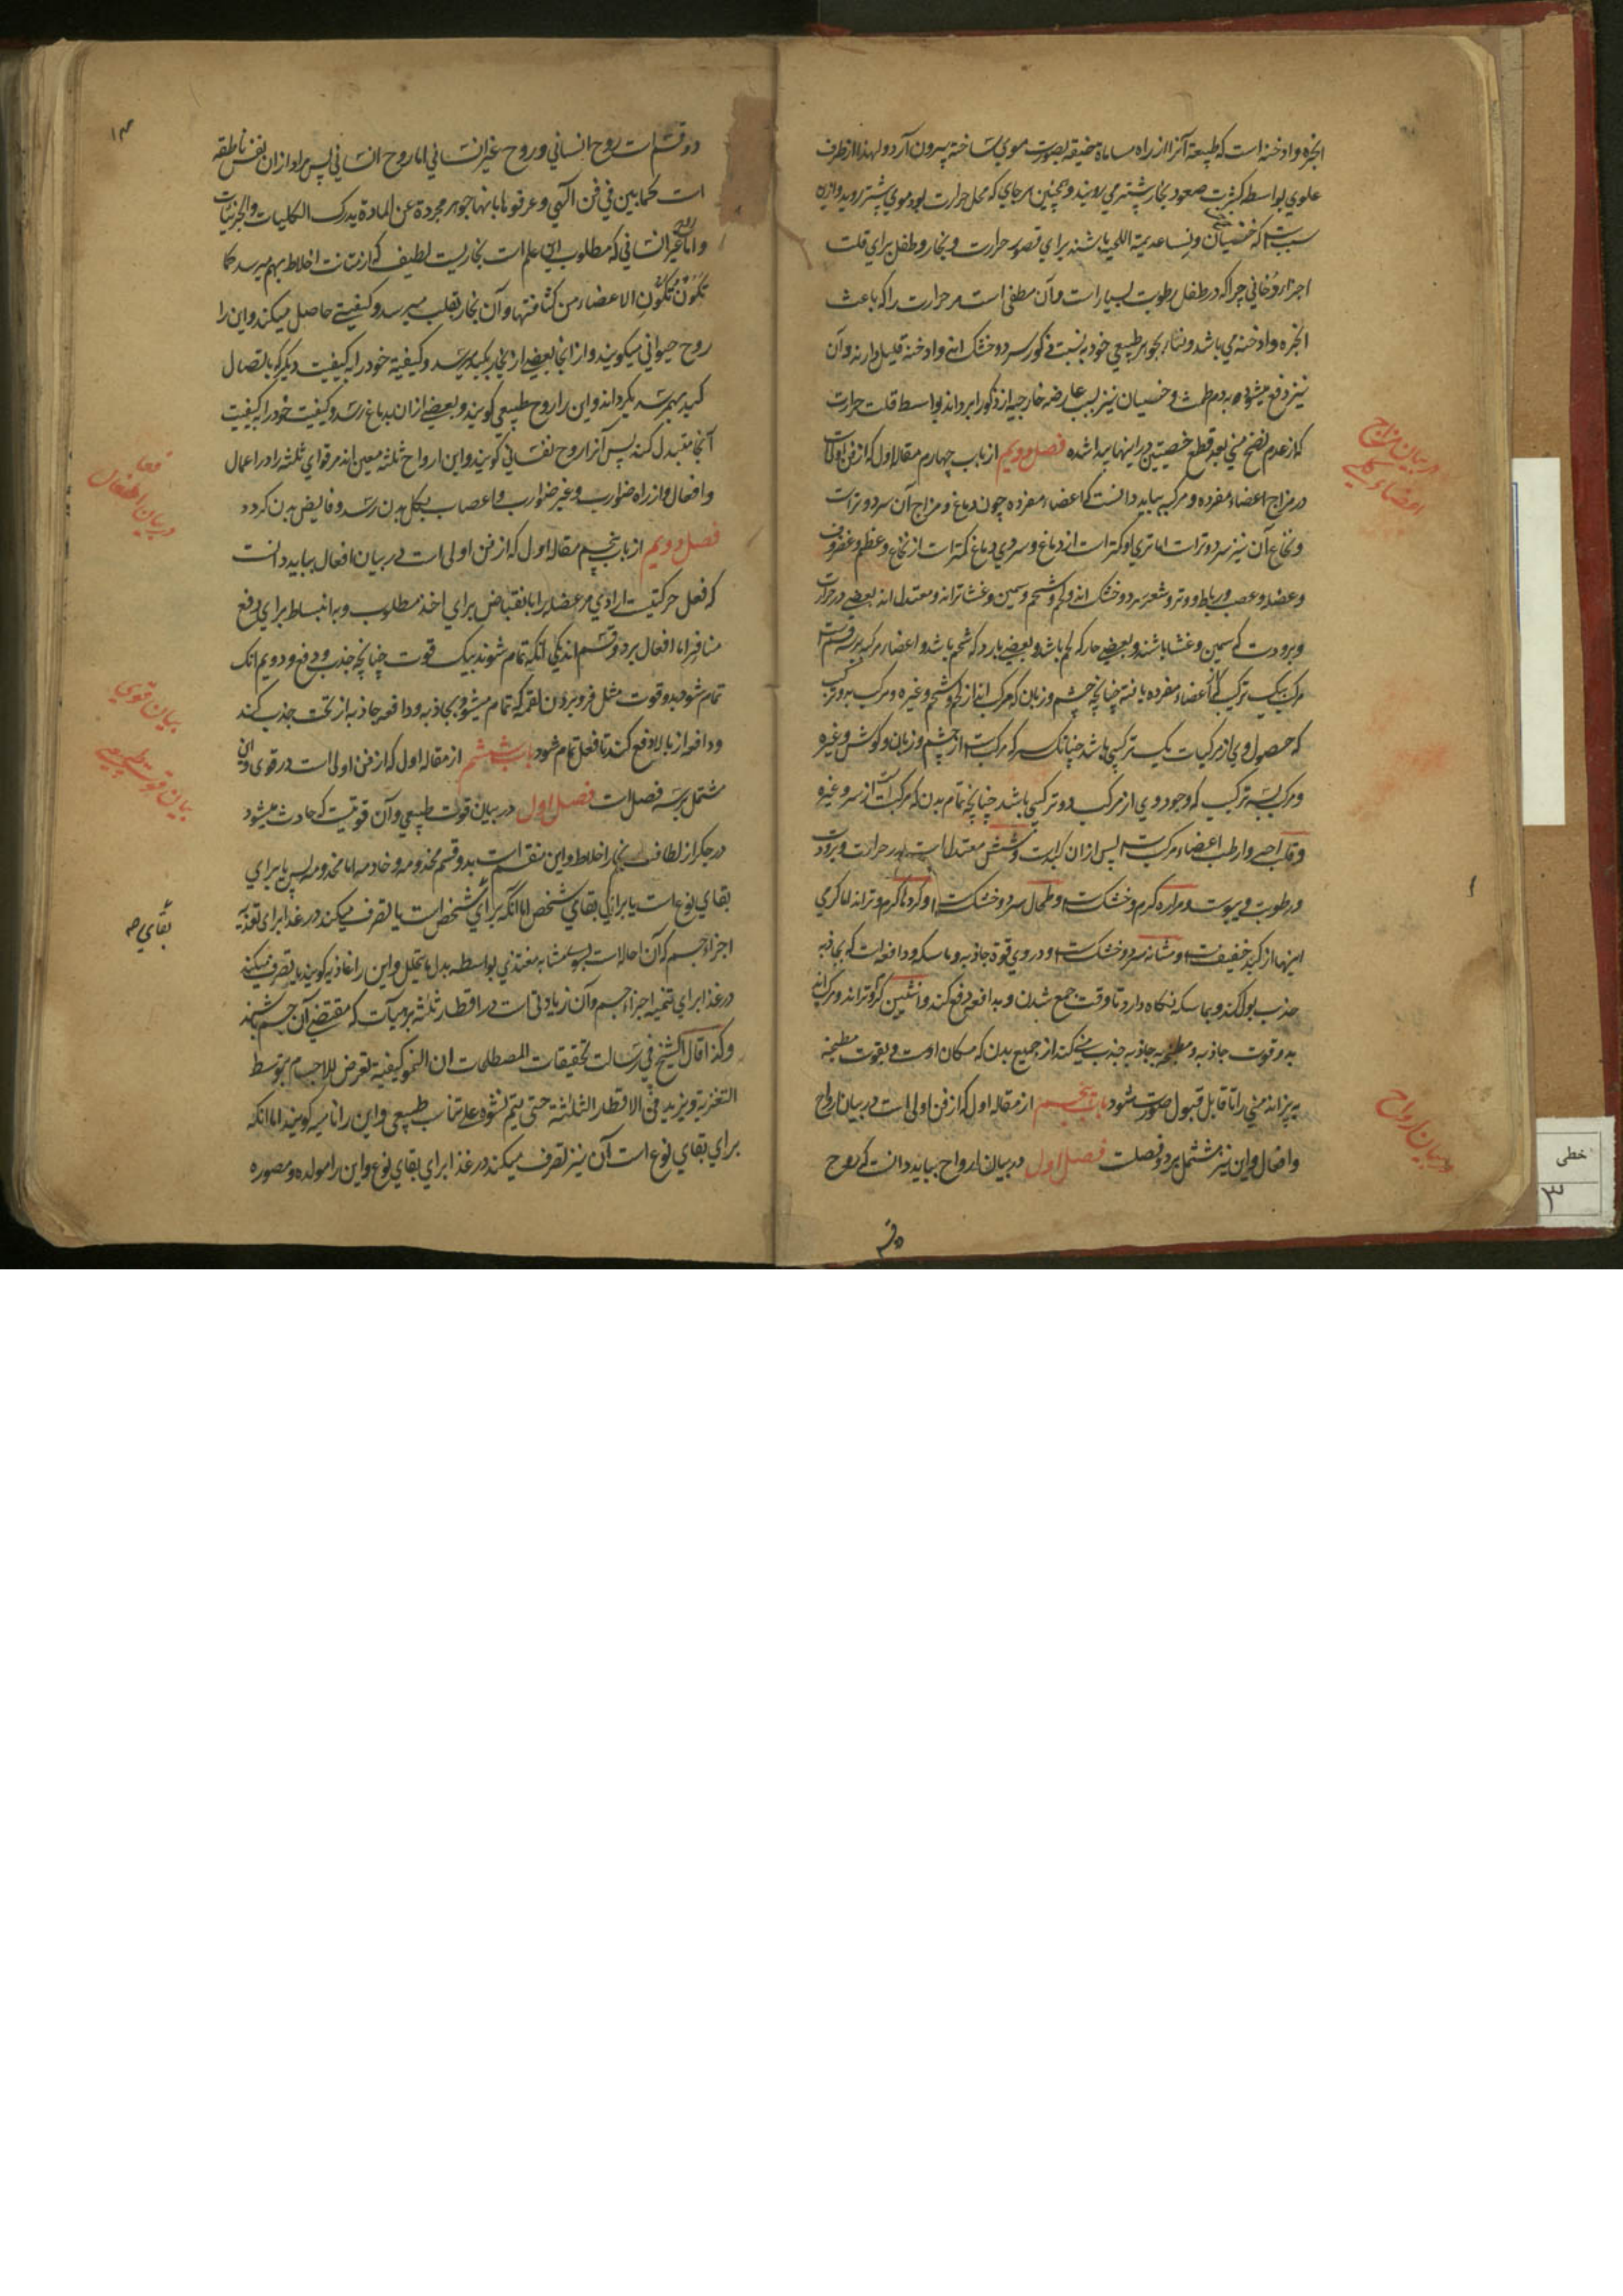 ابخره و ادخنه است که طبیعة آنرا از راه مسامات ضیقه بصورت موی ساخته بیرون آرد و لهذا از طرف
علوی بواسطه کثرت صعود بخار بیشتر می روید و همچنین هر جای که محل حرارت بود موی بیشتر روید و ازین
سبب است که خصیان و نسا عدیمة اللحی باشند برای قصور حرارت و بخار و طفل برای قلت
اجزاء دخانی چرا که در طفل رطوبت بسیار است و آن مطفی است مر حرارت را که باعث
ابخره و ادخنه می باشد و نساء بجوهر طبیعی خود به نسبت ذکور سرد و خشک اند و ادخنه قلیل دارند و آن
نیز دفع میشود به دم طمث و خصیان نیز بسبب عارضه خارجیه از ذکور ابرد اند بواسطه قلت حرارت
که از عدم نضج منی بعد قطع خصیتین در اینها پیدا شده فصل دویم از باب چهارم مقاله اول که از فن اولی است
در مزاج اعضاء مفرده و مرکبه بباید دانست که اعضاء مفرده چون دماغ و مزاج آن سرد و تر است
و نخاع آن نیز سرد و تر است اما تری او کمتر است از دماغ و سردی دماغ کمتر است از نخاع و عظم و غضروف
و عضله و عصب و رباط و وتر و شعر سرد و خشک اند و لحم و شحم و سمین و غشا تر اند و معتدل اند بعضی در حرارت
و برودت که سمین و غشا باشند و بعضی حار که لحم باشد و بعضی بارد که شحم باشد و اعضاء مرکبه بر سه قسم است
مرکب بیک ترکیب که از اعضاء مفرده یافته چنانچه چشم و زبان که مرکب اند از لحم و شحم و غیره و مرکب بدو ترکیب
که حصول وی از مرکبات یک ترکیبی باشد چنانکه سر که مرکب است از چشم و زبان و گوش و غیره
و مرکب بسه ترکیب که وجود وی از مرکب دو ترکیبی باشد چنانچه تمام بدن که مرکب است از سر و غیره
و قلب احر و ارطب اعضاء مرکب است پس از آن کبد است و شش معتدل است در حرارت و برودت
و رطوبت و یبوست و مراره گرم و خشک است و طحال سرد و خشک است و گرده گرم و تر اند اما گرمی
اینها از کبد خفیف است و مثانه سرد و خشک است و در وی قوة جاذبه و ماسکه و دافعه است که بجاذبه
جذب بول کند و بماسکه نگاه دارد تا وقت جمع شدن و بدافعه دفع کند و انثیین گرم و تر اند و مرکب اند
بدو قوت جاذبه و مطبخه به جاذبه جذب منی کند از جمیع بدن که مکان اوست و بقوت مطبخه
به پزاند منی را تا قابل قبول صورت شود باب پنجم از مقاله اول که از فن اولی است در بیان ارواح
و افعال و این نیز مشتمل بر دو فصلست فصل اول در بیان ارواح بباید دانست که روح
دو قسم
در بیان مزاج
اعضاء کلی
در بیان ارواح
خطی
۳
۱۳
دو قسم است روح انسانی و روح غیر انسانی اما روح انسانی پس مراد از آن نفس ناطقه
است کما بین فی فن الهی و عرفوها بانها جوهر مجردة عن المادة یدرک الکلیات والجزئیات
و اما روح غیر انسانی که مطلوب این علم است بخاریست لطیف که از متانت اخلاط بهم میرسد کما
تکون تکون الاعضاء من کثافتها و آن بخار بقلب میرسد و کیفیتی حاصل میکند و این را
روح حیوانی میگویند و از آنجا بعضی از بخار بکبد میرسد و کیفیة خود را به کیفیت دیگر که باتصال
کبد بهم رسد بگرداند و این را روح طبیعی گویند و بعضی از آن بدماغ رسد و کیفیت خود را به کیفیت
آنجا متبدل کند پس آنرا روح نفسانی گویند و این ارواح ثلثه معین اند مر قوای ثلثه را در اعمال
و افعال و از راه ضوارب و غیر ضوارب و اعصاب بکل بدن رسد و فایض بدن گردد
فصل دویم از باب پنجم مقاله اول که از فن اولی است در بیان افعال بباید دانست
که فعل حرکتیست ارادی مر عضله را بانقباض برای اخذ مطلوب و به انبساط برای دفع
منافر اما افعال بر دو قسم اند یکی آنکه تمام شوند بیک قوت چنانچه جذب و دفع و دویم آنکه
تمام شود بدو قوت مثل فرو بردن لقمه که تمام میشود بجاذبه و دافعه جاذبه از تحت جذب کند
و دافعه از بالا دفع کند تا فعل تمام شود باب ششم از مقاله اول که از فن اولی است در قوی و این
مشتمل بر سه فصل است فصل اول در بیان قوت طبیعی و آن قوتیست که حادث میشود
در جگر از لطافت بخار اخلاط و این منقسم است بدو قسم مخدومه و خادمه اما مخدومه پس یا برای
بقای نوع است یا برای بقای شخص اما آنکه برای شخص است یا تصرف میکند در غذا برای تغذیه
اجزاء جسم که آن احاله است بسوی مشابه مغتذی بواسطه بدل ما یتحلل و این را غاذیه گویند یا تصرف میکند
در غذا برای تنمیه اجزاء جسم و آن زیادتی است در اقطار ثلثه بر هیأت که مقتضی آن جسم باشند
و کذا قال الشیخ فی رسالت تحقیقات المصطلحات ان النمو کیفیة تعرض للاجسام بتوسط
التغذیة و یزید فی الاقطار الثلاثة حتی یتم نشوه علی تناسب طبیعی و این را نامیه گویند اما آنکه
برای بقای نوع است آن نیز تصرف میکند در غذا برای بقای نوع و این را مولده و مصوره
در بیان افعال
بیان قوی
بیان قوت طبیعی
بقای ص